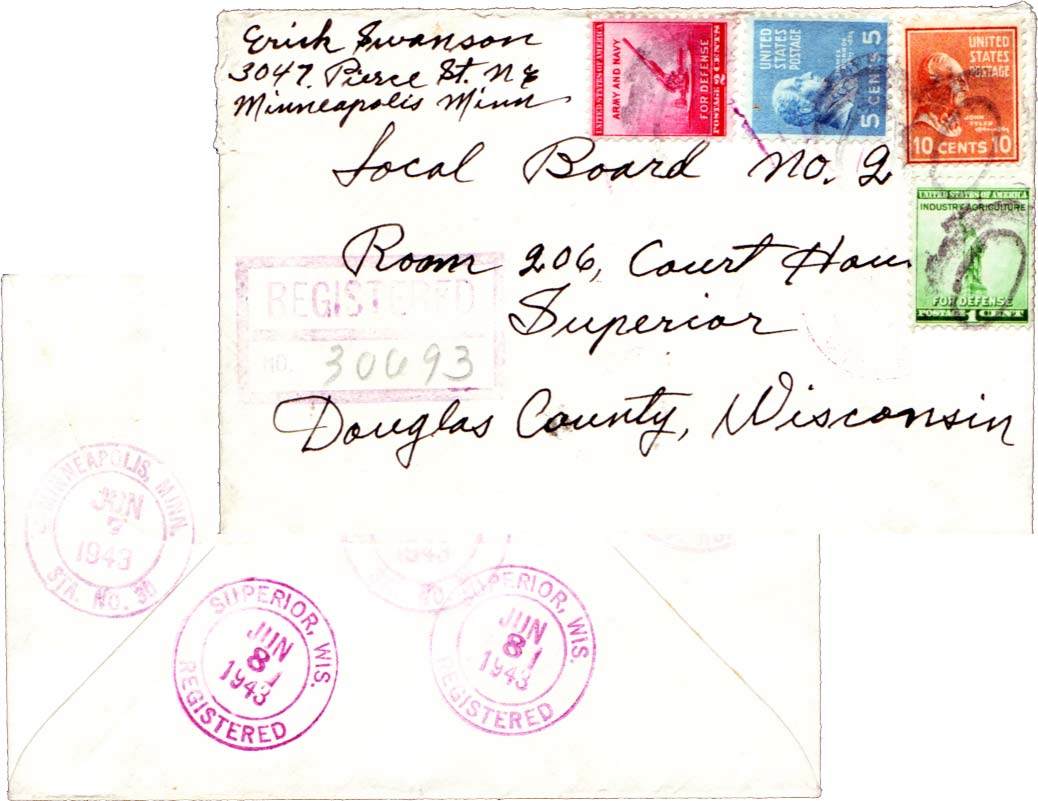 Erick Swanson
3047 Pierce St. N E
Minneapolis Minn
UNITED STATES OF AMERICA
ARMY AND NAVY
FOR DEFENSE
POSTAGE 2 CENTS
UNITED
STATES
POSTAGE
5 CENTS 5
UNITED
STATES
POSTAGE
JOHN
TYLER
10 CENTS 10
UNITED STATES OF AMERICA
INDUSTRY AGRICULTURE
FOR DEFENSE
POSTAGE 1 CENT
Local Board No. 2
Room 206, Court Hou
Superior
Douglas County, Wisconsin
REGISTERED
NO. 30693
MINNEAPOLIS, MINN.
JUN
7
1943
STA. No. 30
1943
SUPERIOR, WIS.
JUN
81
1943
REGISTERED
SUPERIOR, WIS.
JUN
81
1943
REGISTERED